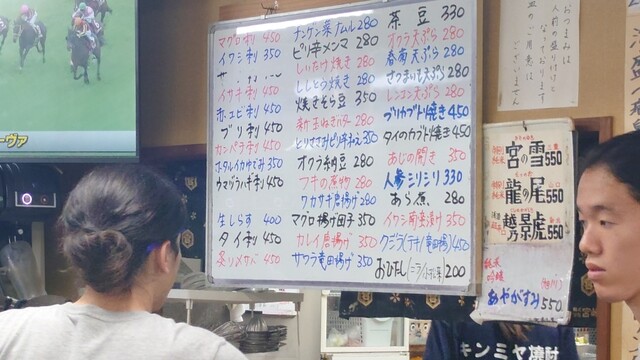 マグロ刺 450
イワシ刺 350
イサキ刺 450
赤エビ刺 450
ブリ刺 450
カンパチ刺 450
ホタルイカゆでみ 350
ウマヅラハギ刺 450
生しらす 400
タイ刺 450
炙りメサバ 450
ナンゲン菜ナムル 280
ピリ辛メンマ 280
しいたけ焼き 280
ししとう焼き 280
焼きそら豆 350
新玉ねぎバター 280
とりささみピリ辛和え 350
オクラ納豆 280
フキの煮物 280
ワカサギ唐揚げ 280
マグロ揚げ団子 350
カレイ唐揚げ 350
サワラ竜田揚げ 350
茶豆 330
オクラ天ぷら 280
春菊天ぷら 280
さつまいも天ぷら 280
レンコン天ぷら 280
ブリカブト焼き 450
タイのカブト焼き 450
あじの開き 350
人参シリシリ 330
あら煮 280
イワシ南蛮漬け 350
クジラ(竜田揚) 450
おひたし 200
おつまみは
人前の盛り付けと
なっております
皿のご用意は
ございません
宮の雪 550
龍の尾 550
越乃景虎 550
純米
吟醸
あやがすみ 550
ーヴァ
キンミヤ焼酎